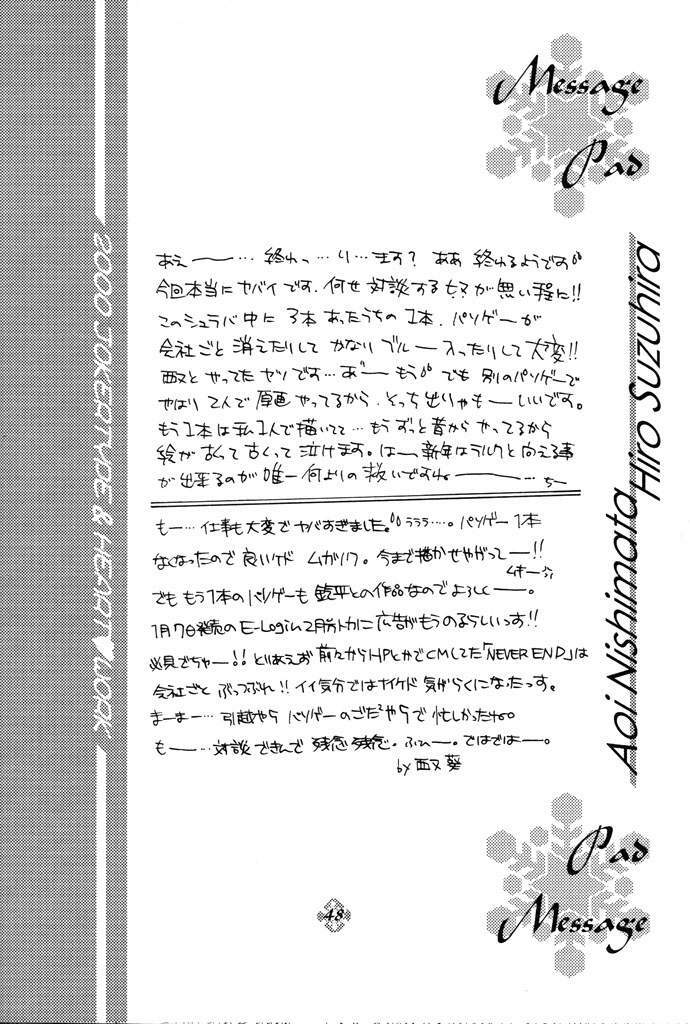 Message
Pad
あえー…終わっ…り…ます？ああ 終わるようです
今回本当にヤバイです. 何せ 対談するヒマが無い程に!!
このシュラバ中に 3本 あったうちの 1本. パソゲーが
会社ごと 消えたりして かなり ブルー 入ったりして 大変!!
西又と やってた ヤツです… あ゛ー もう でも 別のパソゲーで
やはり 2人で 原画 やってるから. そっち 出りゃもー いいです。
もう1本は 私1人で描いてて…もう ずっと昔から やってるから
絵が 古くて 古くって 泣けます。はー. 新年は ラルクと 向える事
が 出来るのが 唯一 何よりの 救いですねー…
もー… 仕事も大変で ヤバすぎました。うううう…。パソゲー 1本
なくなったので 良いケド ムカツク。今まで描かせやがってー!!
ムキー
でも もう1本の パソゲーも 鈴平との作品なので よろしくー。
1月7日発売の E-Login 2月号トカに 広告がもうのるらしいっす!!
必見でちゃー!! とりあえず 前々からHPとかで CMしてた「NEVER END」は
会社ごと ぶっつぶれ!! イイ気分ではナイケド 気がらくになたっす。
まーまー… 引越やら パソゲーの ごたごたやらで 忙しかったね。
もー… 対談 できんで 残念 残念。ふへー。ではではー。
by 西又 葵
2000 JOKERTYPE & HEART♥WORK
Hiro Suzuhira
Aoi Nishimata
Pad
Message
48